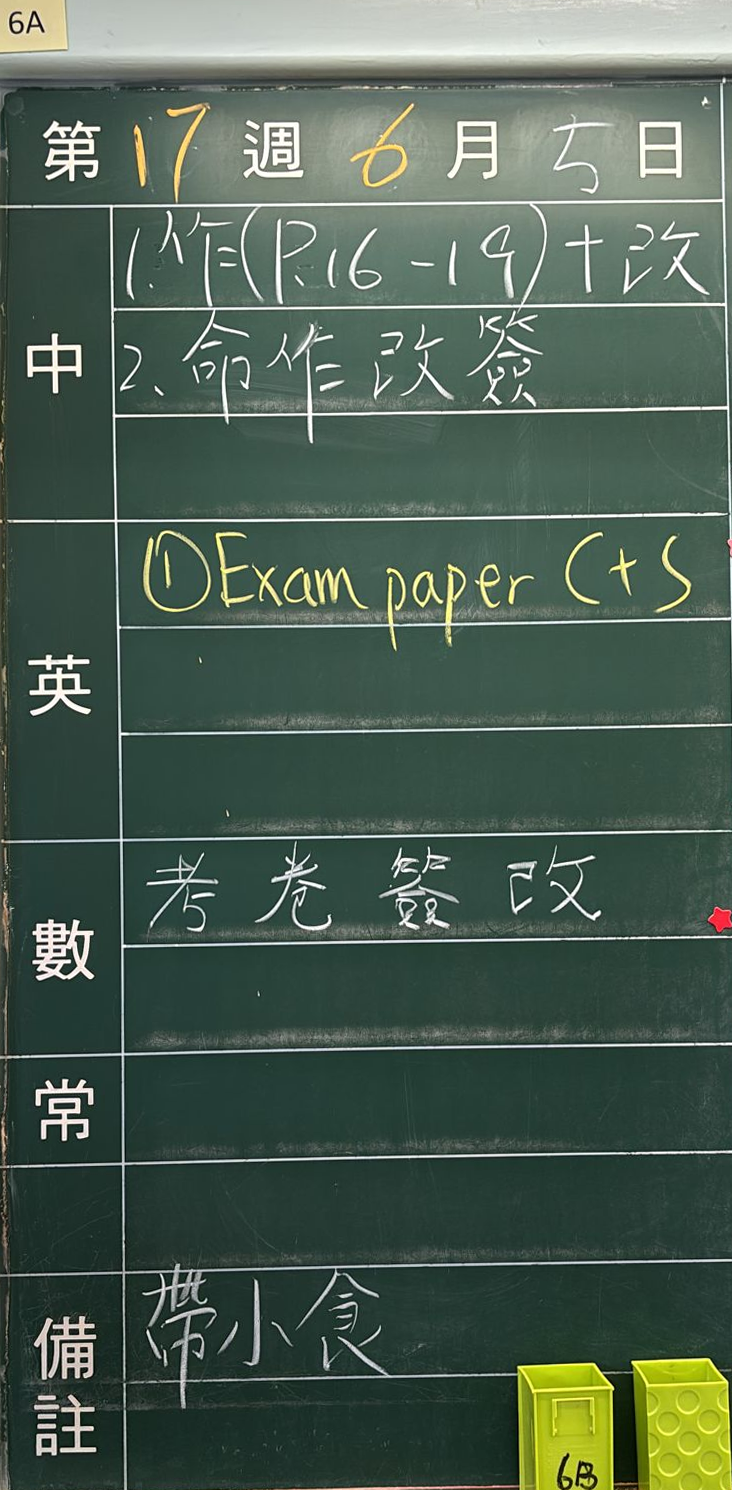 6A
第17週6月5日
中
1.作(P.16-19)+改
2.命作改簽
英
①Exam paper C+S
數
考卷簽改
常
備註
帶小食
6B